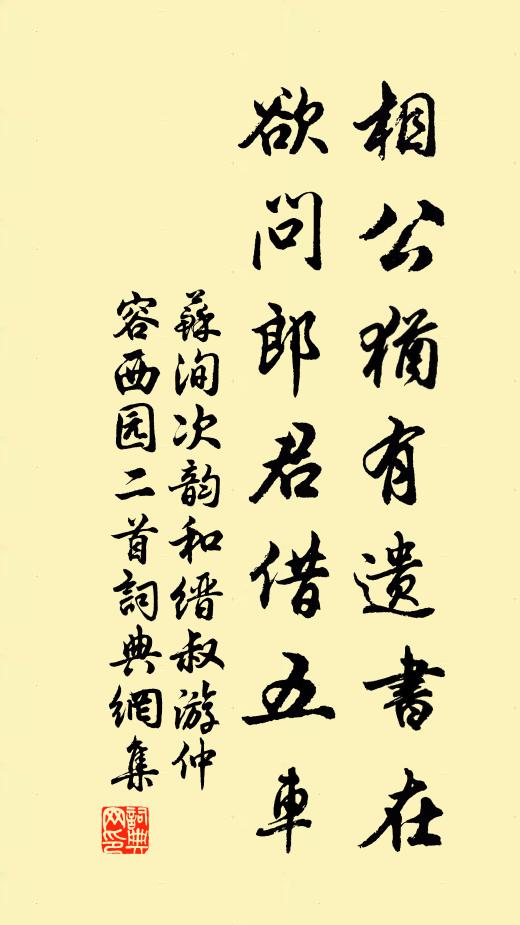 相公猶有遺書在
欲問郎君借五車
蘇洵次韵和缙叔游仲
容西园二首詞典網集
詞典网印